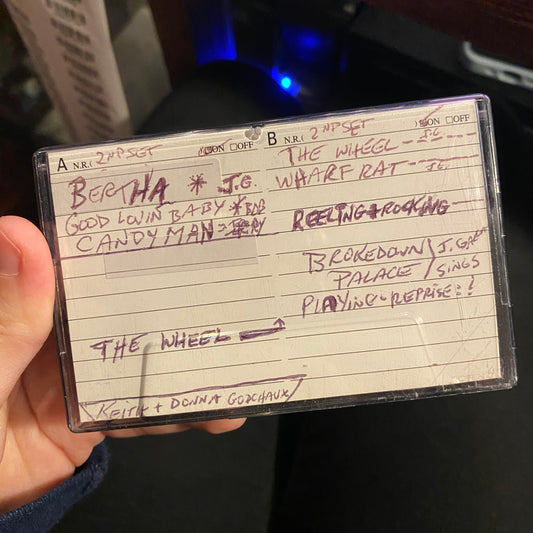 A N.R. ( 2ND SET ) ON OFF
BERTHA * J.G.
GOOD LOVIN BABY * BOB
CANDYMAN
THE WHEEL →
KEITH + DONNA GODCHAUX
B N.R. ( 2ND SET ) ON OFF
THE WHEEL -- J.G.
WHARF RAT -- J.G.
REELING + ROCKING
BROKEDOWN
PALACE
J.G.
SINGS
PLAYING - REPRISE : !